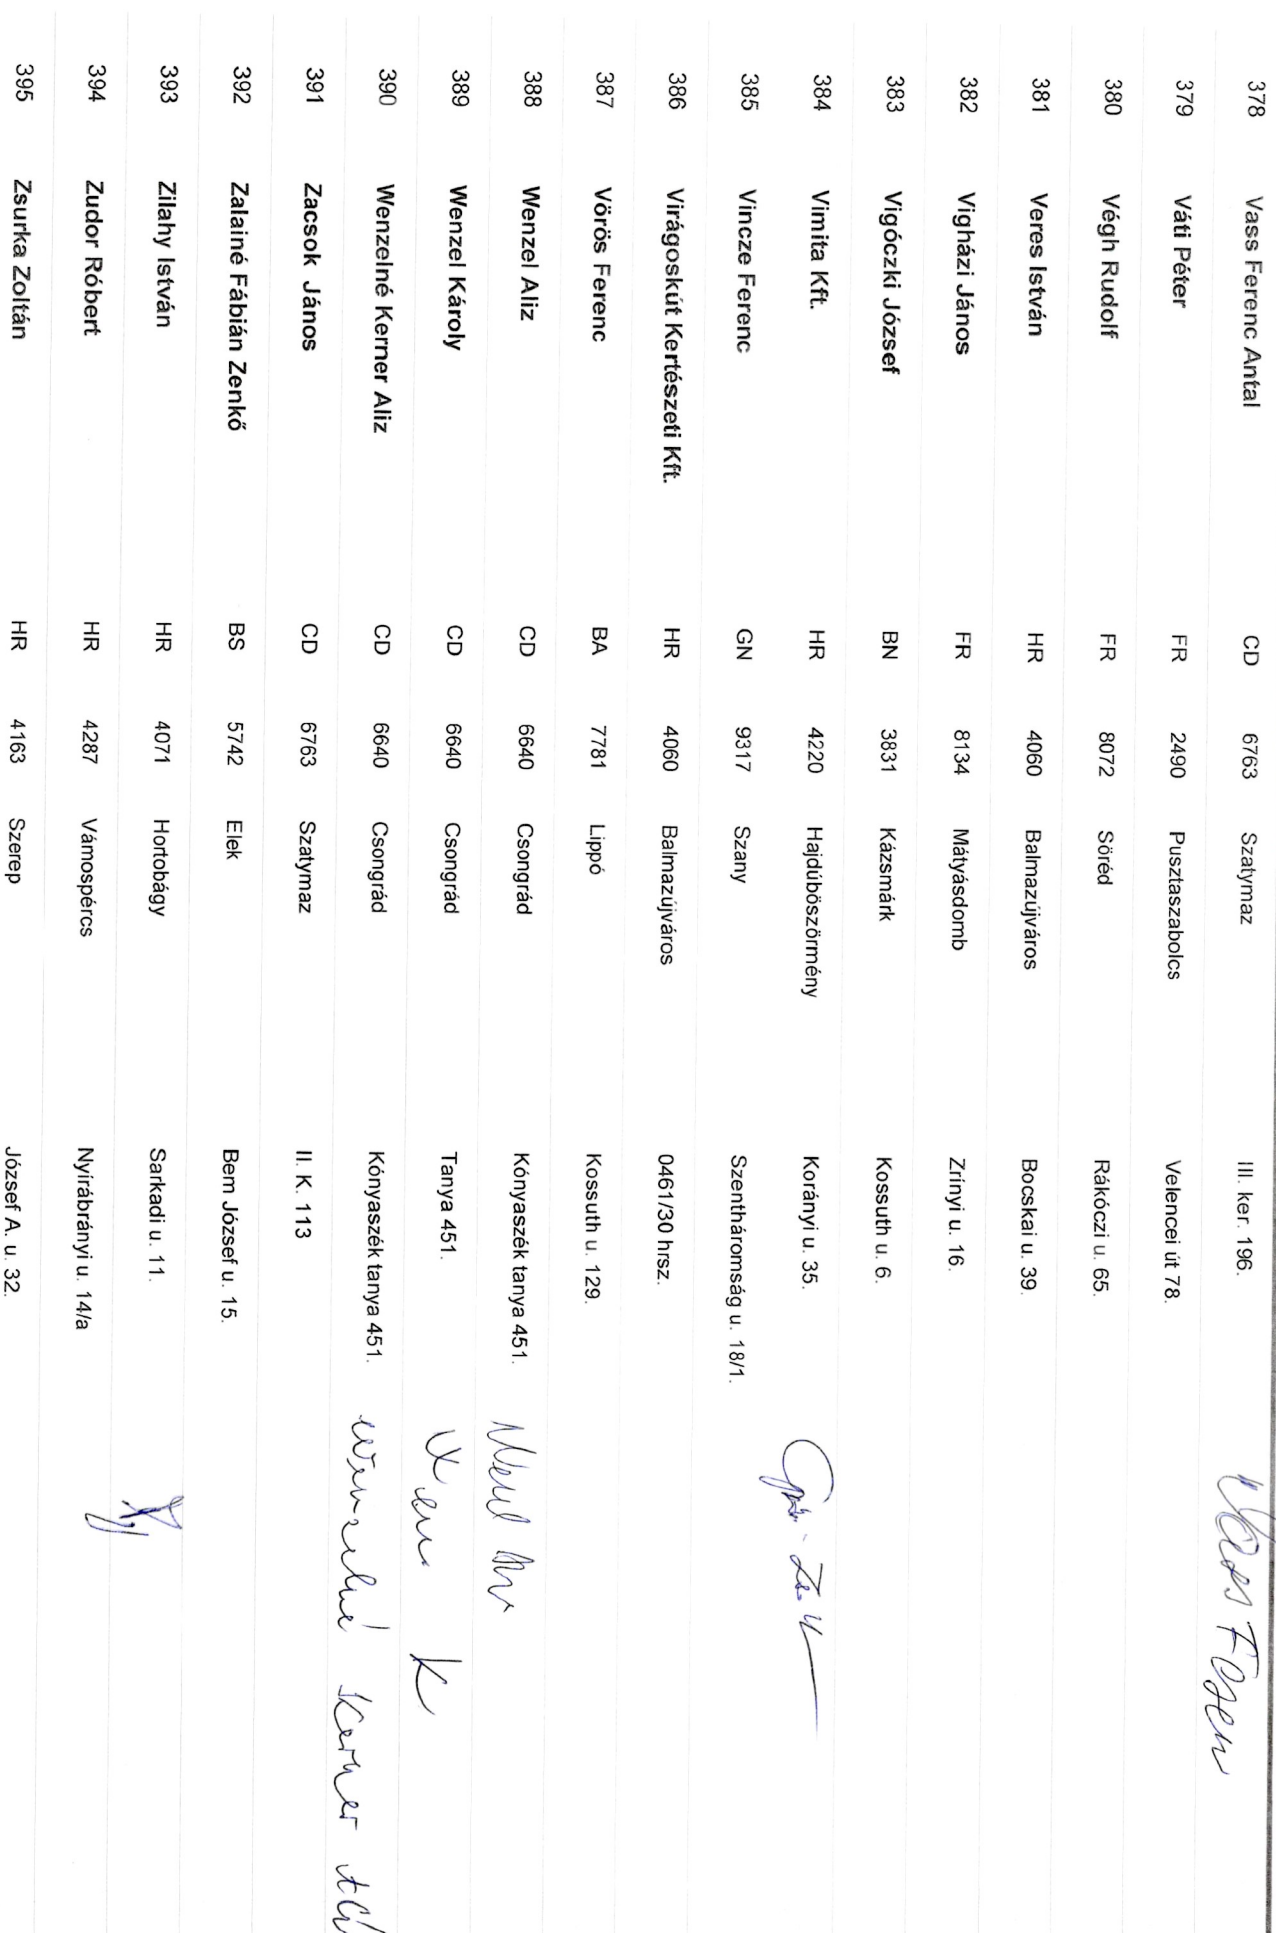 378 Vass Ferenc Antal CD 6763 Szatymaz III. ker. 196. Vass Feren
379 Váti Péter FR 2490 Pusztaszabolcs Velencei út 78.
380 Végh Rudolf FR 8072 Söréd Rákóczi u. 65.
381 Veres István HR 4060 Balmazújváros Bocskai u. 39.
382 Vigházi János FR 8134 Mátyásdomb Zrínyi u. 16.
383 Vigóczki József BN 3831 Kázsmárk Kossuth u. 6.
384 Vimita Kft. HR 4220 Hajdúböszörmény Korányi u. 35.
385 Vincze Ferenc GN 9317 Szany Szentháromság u. 18/1.
386 Virágoskút Kertészeti Kft. HR 4060 Balmazújváros 0461/30 hrsz.
387 Vörös Ferenc BA 7781 Lippó Kossuth u. 129.
388 Wenzel Aliz CD 6640 Csongrád Kónyaszék tanya 451.
389 Wenzel Károly CD 6640 Csongrád Tanya 451. K
390 Wenzelné Kerner Aliz CD 6640 Csongrád Kónyaszék tanya 451. Wenzelné Kerner Ali
391 Zacsok János CD 6763 Szatymaz II. K. 113
392 Zalainé Fábián Zenkő BS 5742 Elek Bem József u. 15.
393 Zilahy István HR 4071 Hortobágy Sarkadi u. 11.
394 Zudor Róbert HR 4287 Vámospércs Nyírábrányi u. 14/a
395 Zsurka Zoltán HR 4163 Szerep József A. u. 32.